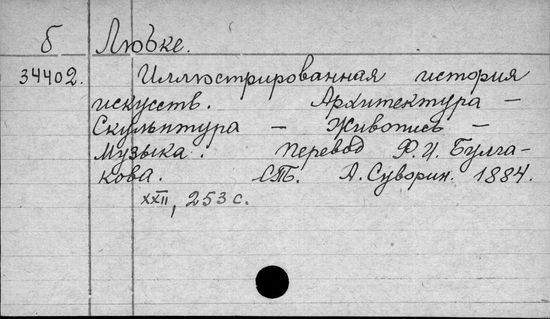 б Любке.
34402. Иллюстрированная история
искусств. Архитектура —
Скульптура — Живопись —
Музыка. Перевод Ф. И. Булга-
кова. СПб. А. Суворин. 1884.
XXII, 253 с.